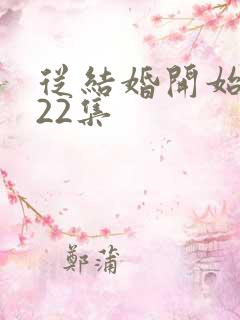 從結婚開始
22集
鄭蒲